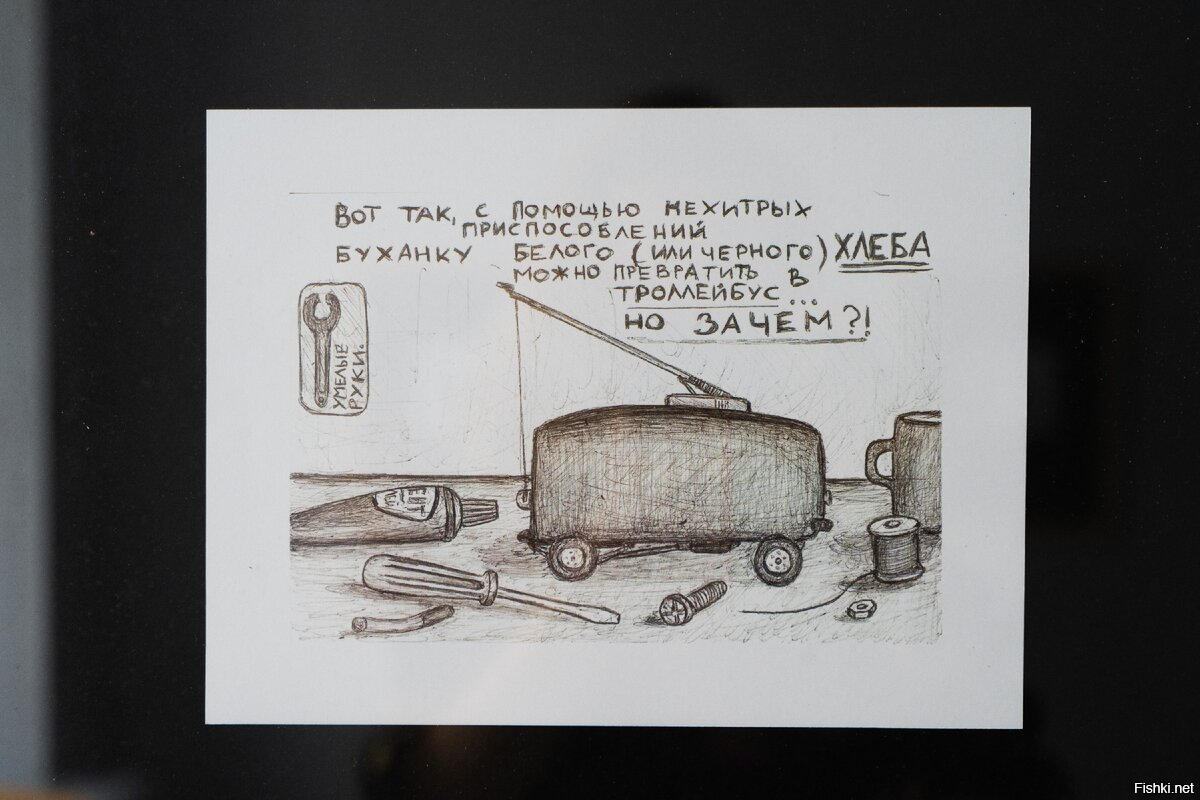 ВОТ ТАК, С ПОМОЩЬЮ НЕХИТРЫХ
ПРИСПОСОБЛЕНИЙ
БУХАНКУ БЕЛОГО (ИЛИ ЧЕРНОГО) ХЛЕБА
МОЖНО ПРЕВРАТИТЬ В
ТРОЛЛЕЙБУС...
НО ЗАЧЕМ?!
УМЕЛЫЕ
РУКИ.
Fishki.net